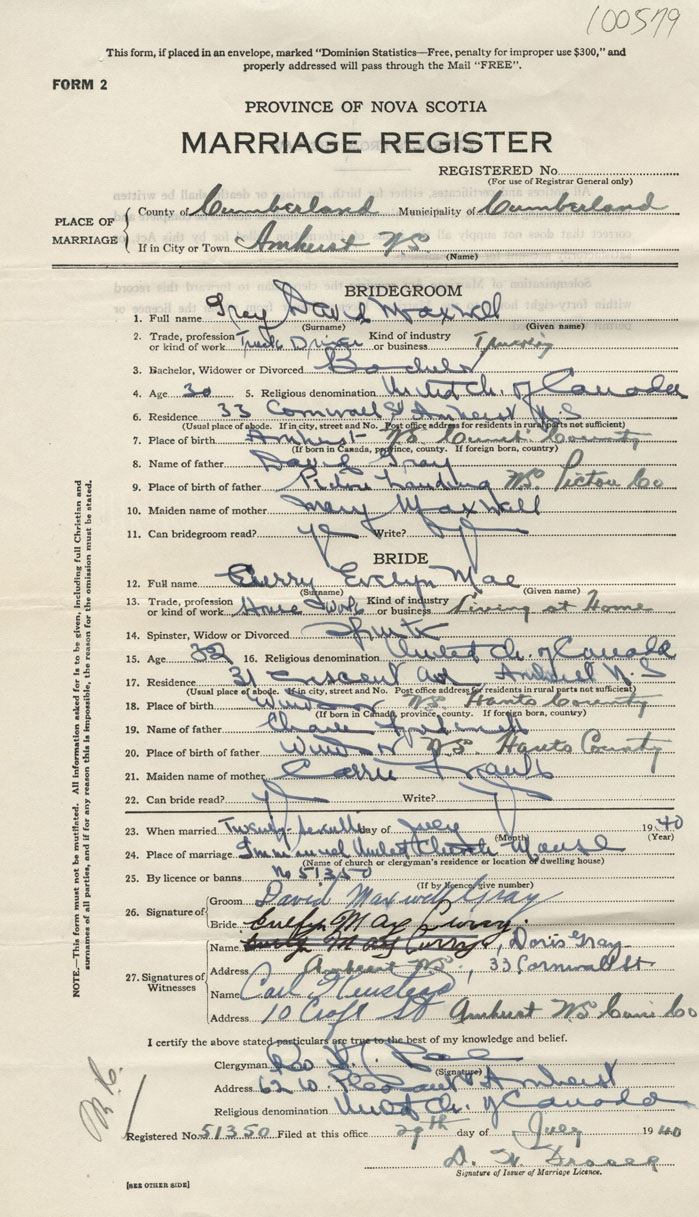 100579
This form, if placed in an envelope, marked "Dominion Statistics—Free, penalty for improper use $300," and
properly addressed will pass through the Mail "FREE".
FORM 2
PROVINCE OF NOVA SCOTIA
MARRIAGE REGISTER
REGISTERED No.
(For use of Registrar General only)
PLACE OF MARRIAGE
County of Cumberland Municipality of Cumberland
If in City or Town Amherst NS
(Name)
BRIDEGROOM
1. Full name Gray David Maxwell
(Surname) (Given name)
2. Trade, profession or kind of work Truck Driver Kind of industry or business Trucking
3. Bachelor, Widower or Divorced Bachelor
4. Age 30 5. Religious denomination United Ch. of Canada
6. Residence 33 Cornwall St Amherst N.S
(Usual place of abode. If in city, street and No. Post office address for residents in rural parts not sufficient)
7. Place of birth Amherst NS County
(If born in Canada, province, county. If foreign born, country)
8. Name of father David Gray
9. Place of birth of father Pictou Landing NS. Pictou Co
10. Maiden name of mother Mary Maxwell
11. Can bridegroom read? yes Write?
BRIDE
12. Full name Curry Evelyn Mae
(Surname) (Given name)
13. Trade, profession or kind of work House Work Kind of industry or business Living at Home
14. Spinster, Widow or Divorced
15. Age 32 16. Religious denomination United Ch. of Canada
17. Residence 31 Crescent Ave Amherst N.S
(Usual place of abode. If in city, street and No. Post office address for residents in rural parts not sufficient)
18. Place of birth Windsor NS. Hants County
(If born in Canada, province, county. If foreign born, country)
19. Name of father Charles
20. Place of birth of father Windsor NS. Hants County
21. Maiden name of mother Carrie
22. Can bride read? Write?
23. When married day of July 1940
(Month) (Year)
24. Place of marriage Immanuel United Church Manse
(Name of church or clergyman's residence or location of dwelling house)
25. By licence or banns No 51350
(If by licence, give number)
26. Signature of
Groom David Maxwell Gray
Bride Evelyn May Curry
27. Signatures of Witnesses
Name Evelyn May Curry, Doris Gray
Address Amherst NS, 33 Cornwall St
Name Carl
Address 10 Croft St Amherst NS Co
I certify the above stated particulars are true to the best of my knowledge and belief.
Clergyman
(Signature)
Address 62 W. Pleasant St Amherst
Religious denomination United Ch. of Canada
Registered No. 51350 Filed at this office 29th day of July 1940
D. W.
Signature of Issuer of Marriage Licence.
[SEE OTHER SIDE]
NOTE.—This form must not be mutilated. All information asked for is to be given, including full Christian and
surnames of all parties, and if for any reason this is impossible, the reason for the omission must be stated.